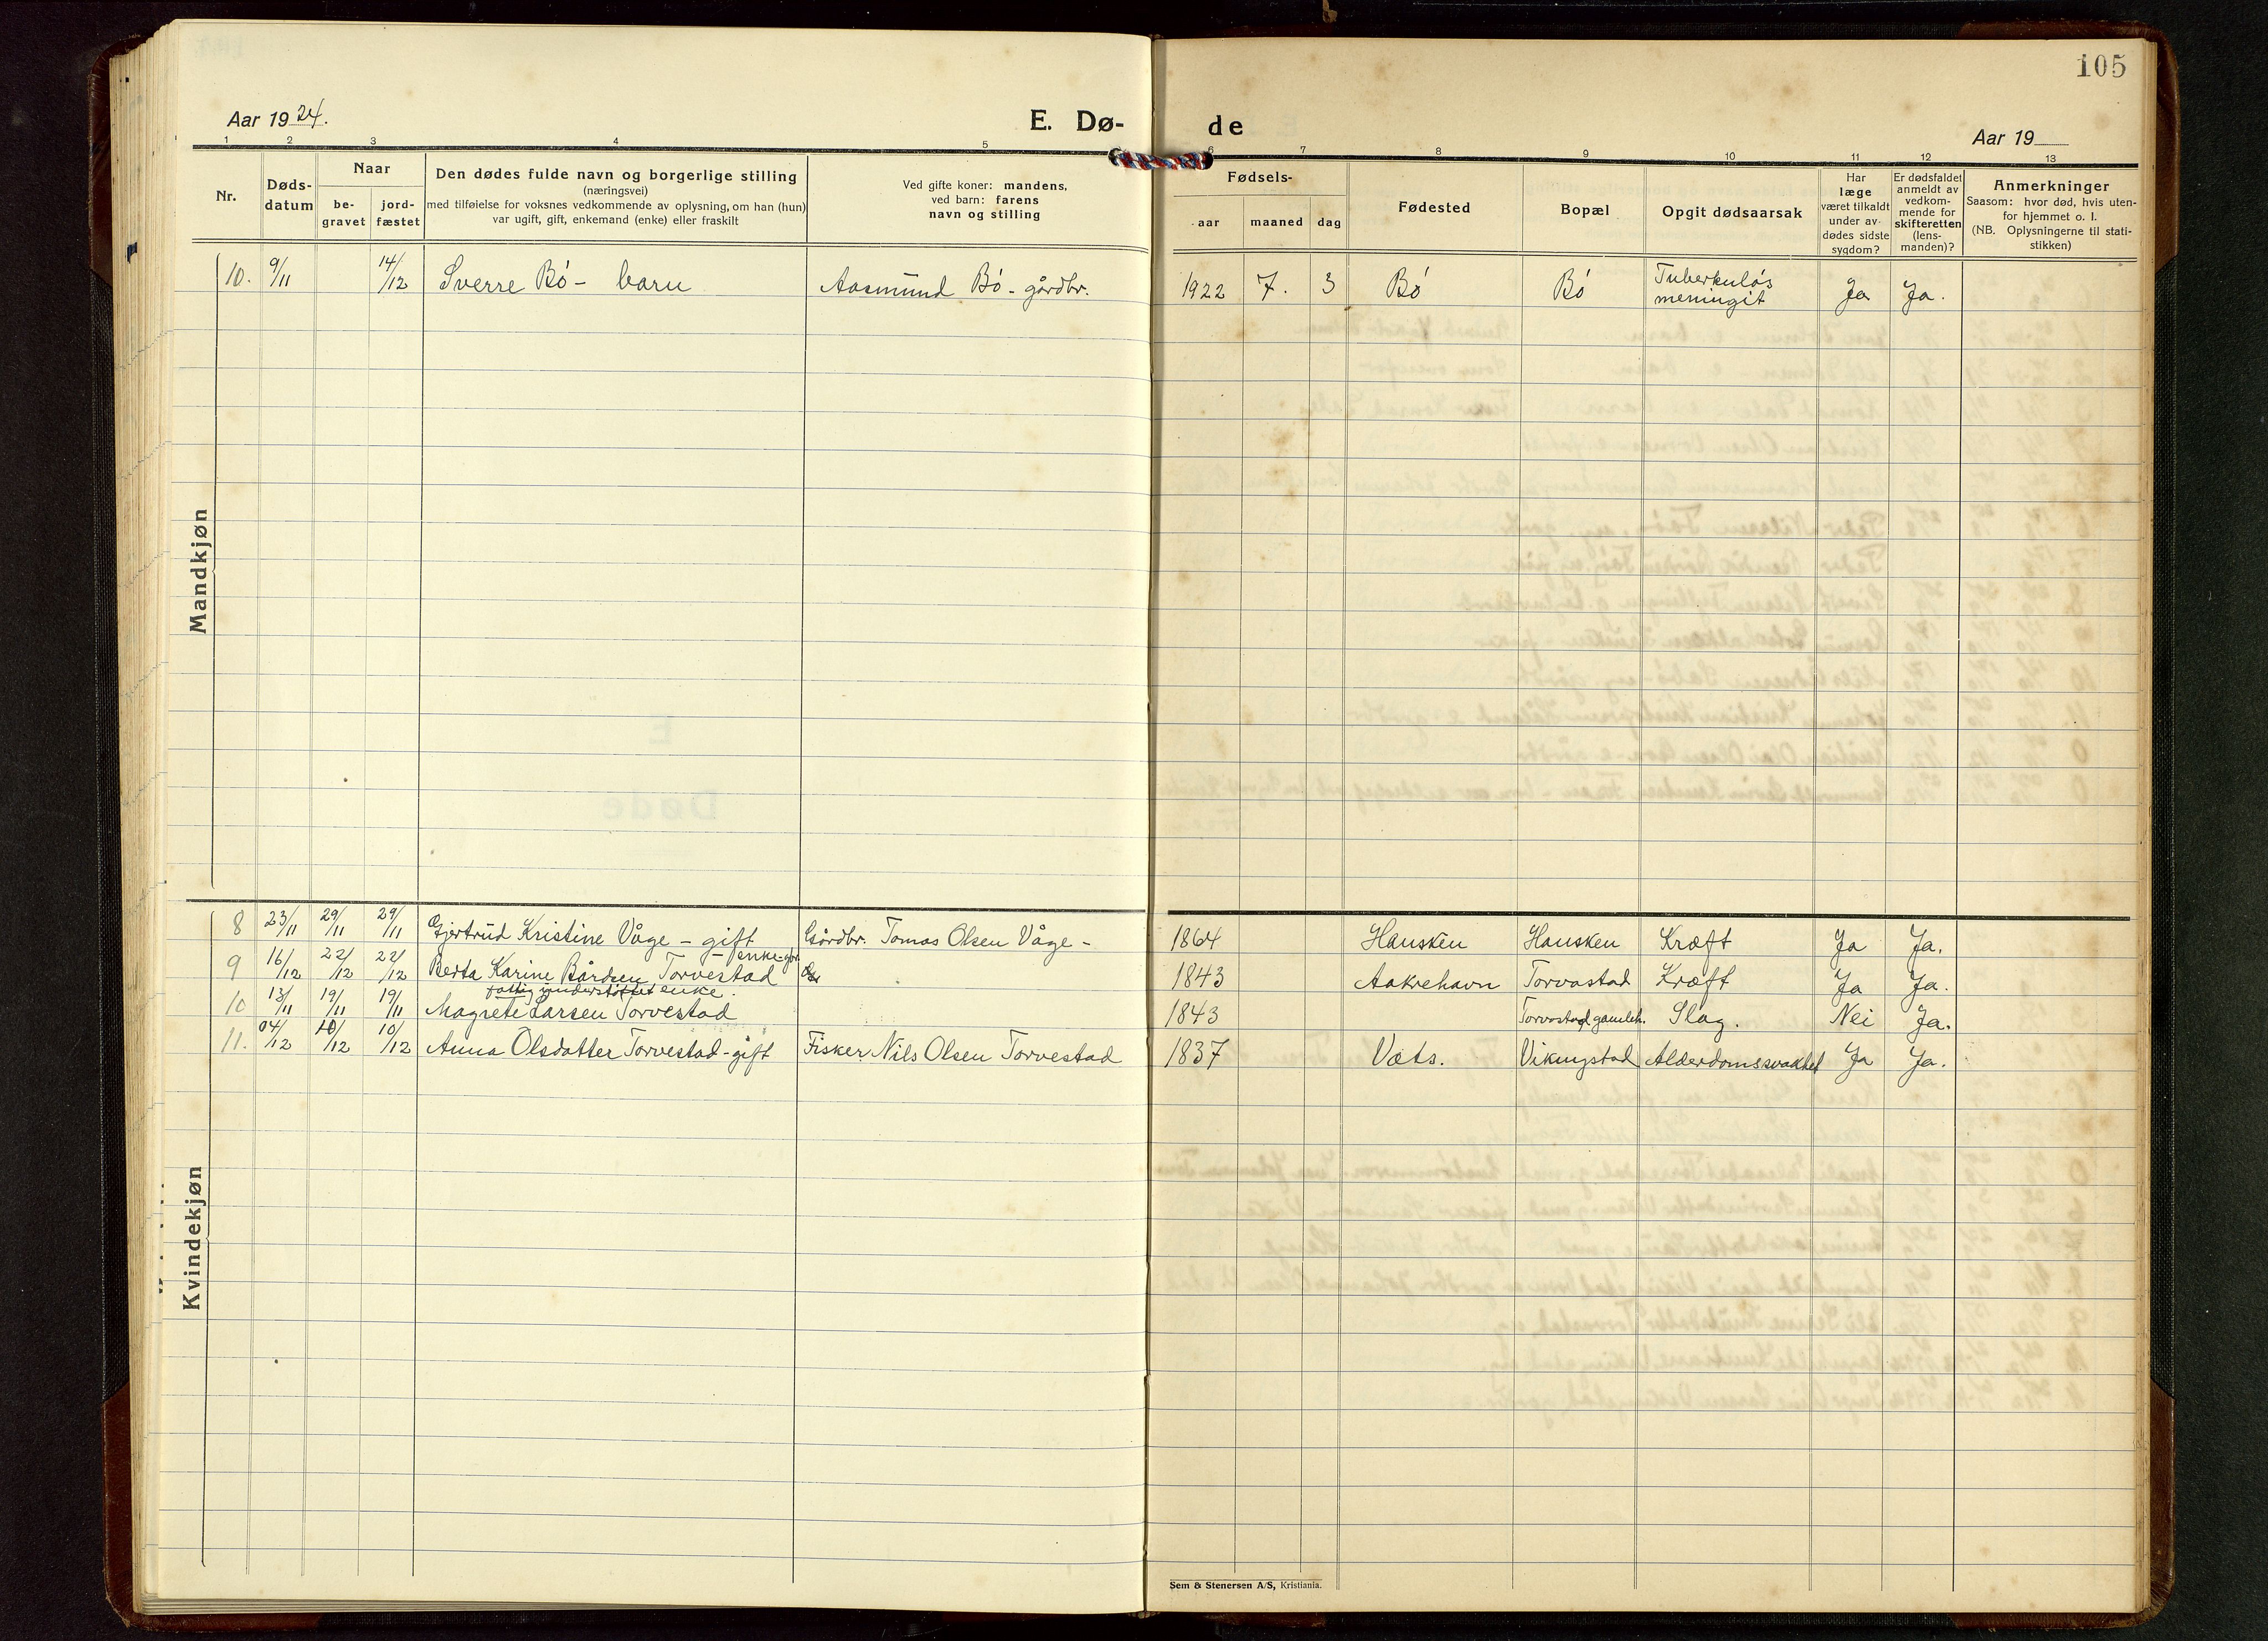 105
Aar 1924.
E. Dø-
de
Aar 19
1 2 3 4 5 6 7 8 9 10 11 12 13
Nr.
Døds-
datum
Naar
be-
gravet
jord-
fæstet
Den dødes fulde navn og borgerlige stilling
(næringsvei)
med tilføielse for voksnes vedkommende av oplysning, om han (hun)
var ugift, gift, enkemand (enke) eller fraskilt
Ved gifte koner: mandens,
ved barn: farens
navn og stilling
Fødsels-
aar maaned dag
Fødested
Bopæl
Opgit dødsaarsak
Har
læge
været tilkaldt
under av-
dødes sidste
sygdom?
Er dødsfaldet
anmeldt av
vedkom-
mende for
skifteretten
(lens-
manden)?
Anmerkninger
Saasom: hvor død, hvis uten-
for hjemmet o. l.
(NB. Oplysningerne til stati-
stikken)
Mandkjøn
10. 9/11 14/12 Sverre Bö - barn Aasmund Bö - gårdbr. 1922 7. 3 Bö Bö Tuberkuløs
meningit Ja Ja.
Kvindekjøn
8 23/11 29/11 29/11 Gjertrud Kristine Våge - gift Gårdbr. Tomas Olsen Våge - 1864 Hausken Hausken Kræft Ja Ja.
- enke
9 16/12 22/12 22/12 Berta Karine Bårdsen Torvestad 1843 Aakrehavn Torvastad Kræft Ja Ja.
fattigunderstöttet enke.
10 13/11 19/11 19/11 Magrete Larsen Torvestad 1843 Torvastad gamleh. Slag. Nei Ja.
11. 04/12 10/12 10/12 Anna Olsdatter Torvestad - gift Fisker Nils Olsen Torvestad 1837 Vats. Vikingstad Alderdomssvakhet Ja Ja.
Sem & Stenersen A/S, Kristiania.